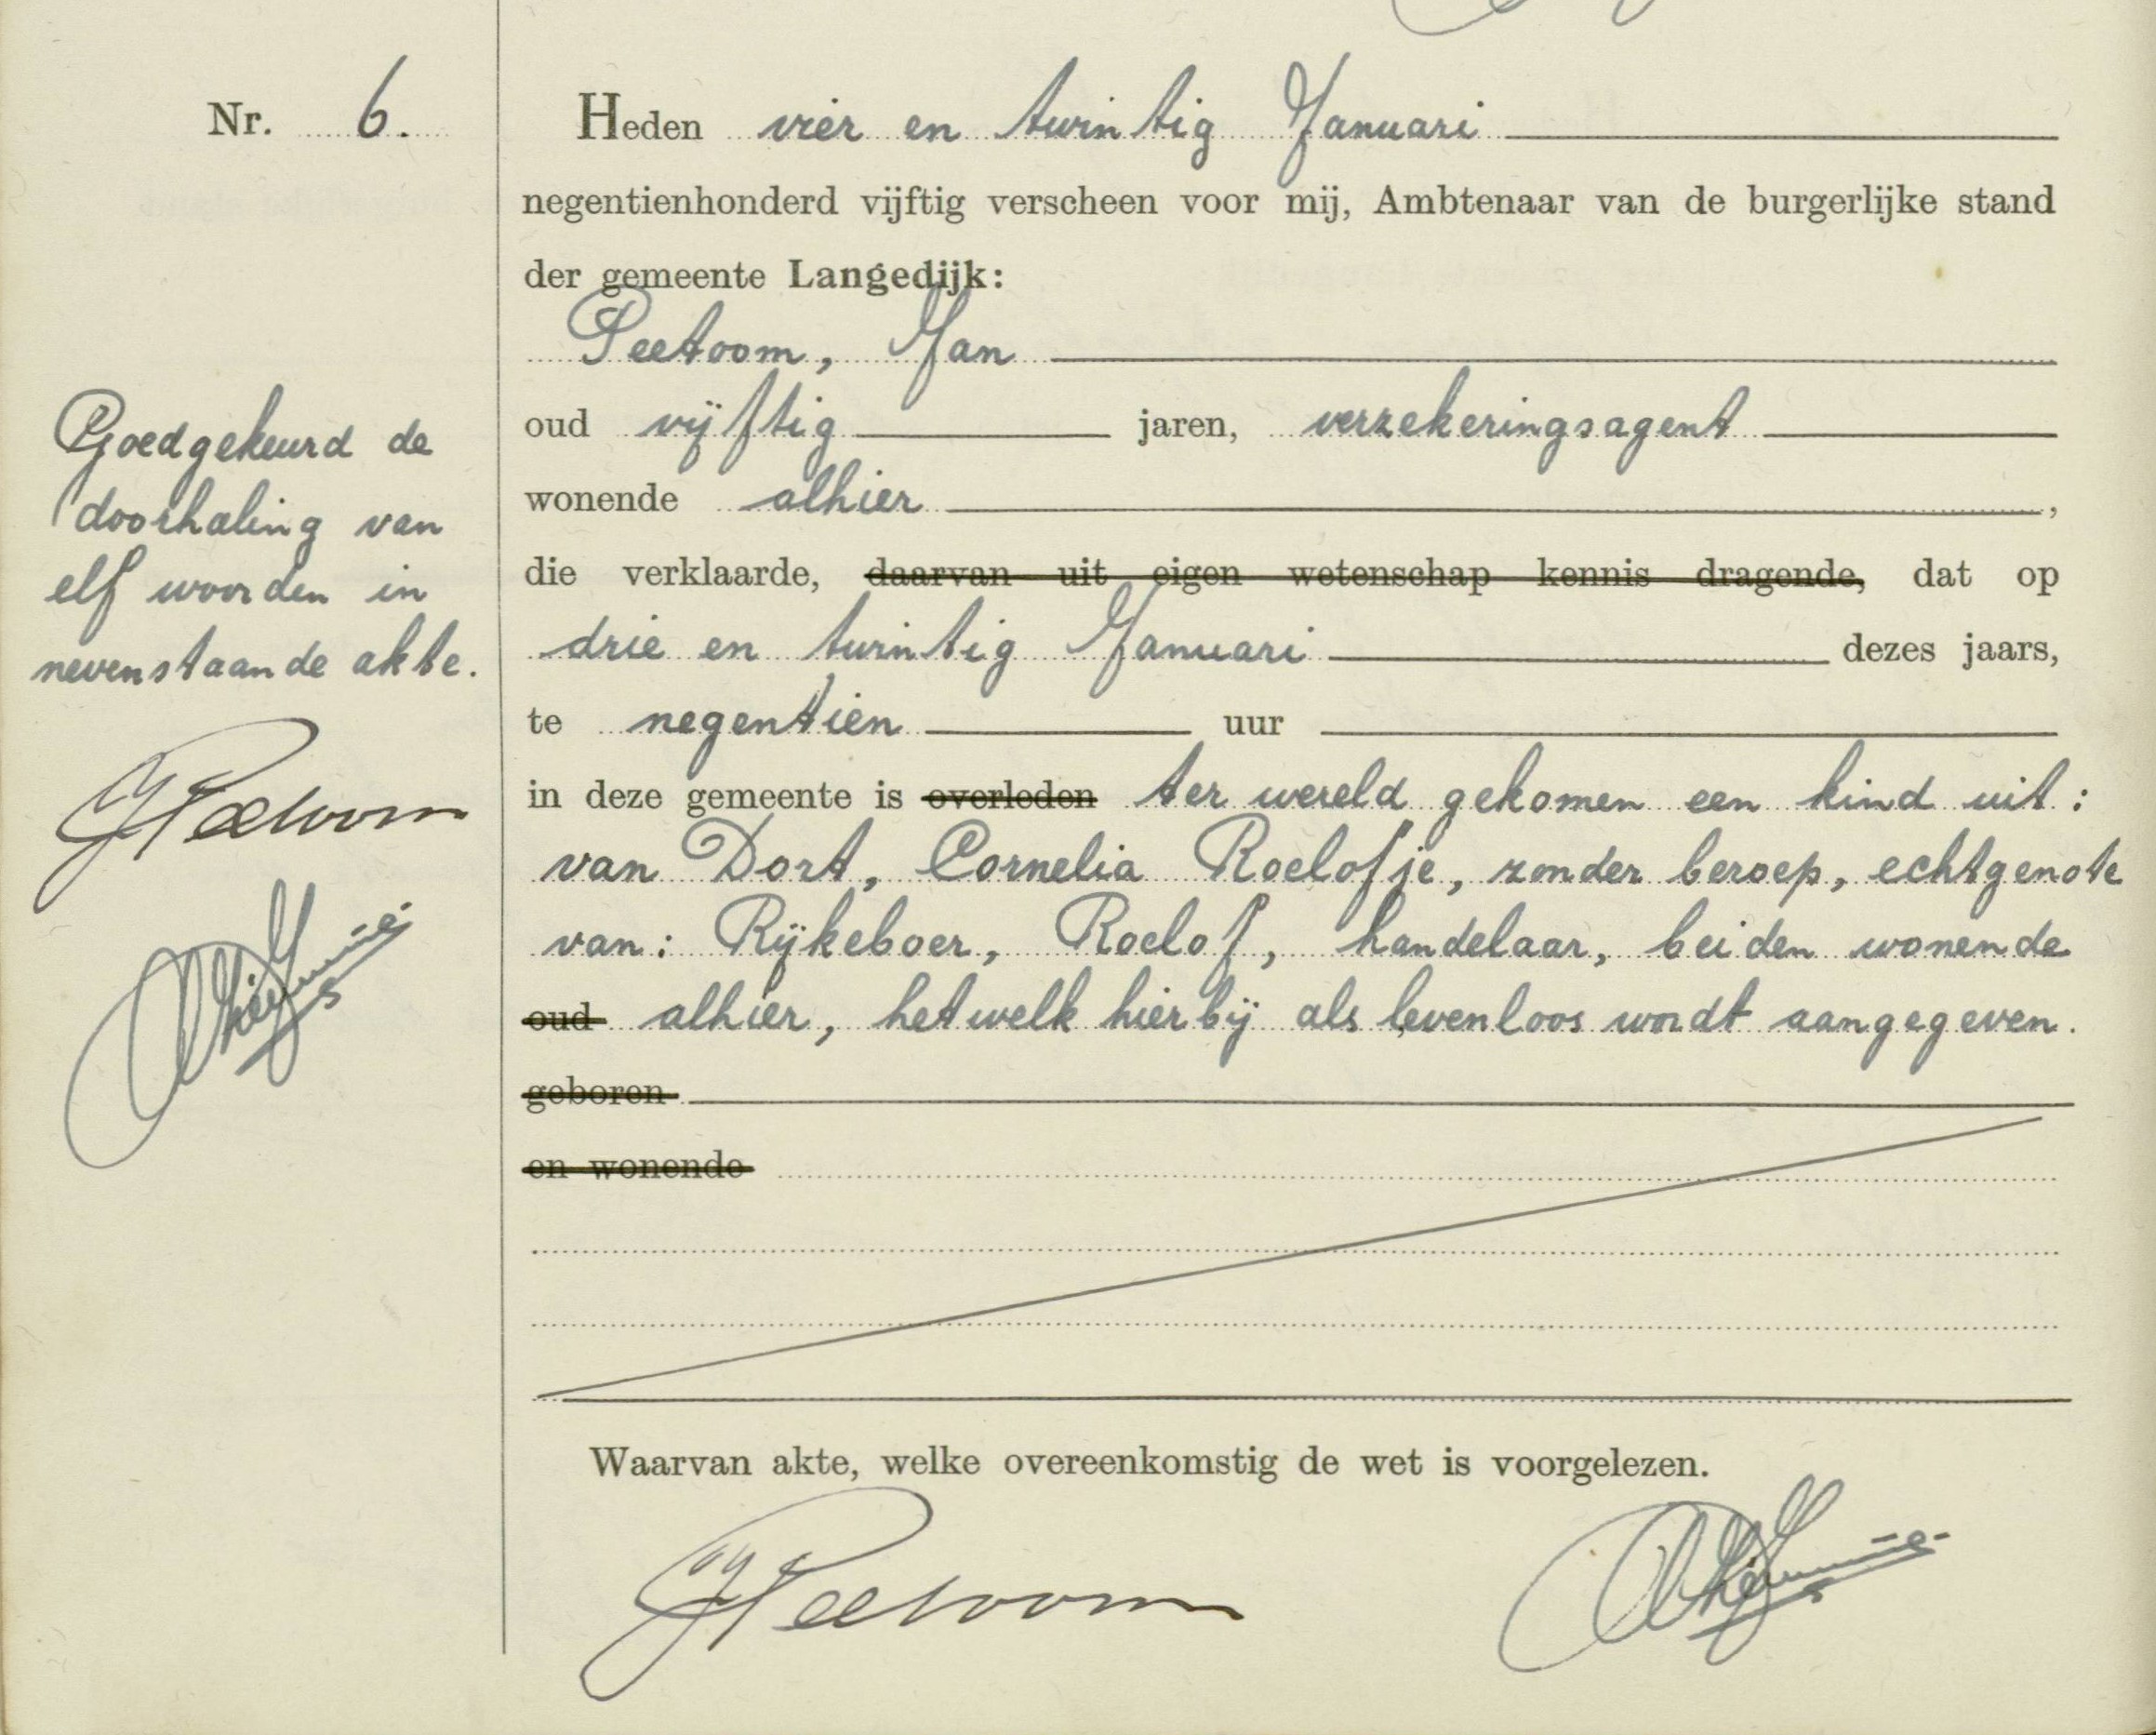 Nr. 6.
Heden vier en twintig Januari
negentienhonderd vijftig verscheen voor mij, Ambtenaar van de burgerlijke stand
der gemeente Langedijk:
Peetoom, Jan
oud vijftig jaren, verzekeringsagent
wonende alhier ,
die verklaarde, daarvan uit eigen wetenschap kennis dragende, dat op
drie en twintig Januari dezes jaars,
te negentien uur
in deze gemeente is overleden ter wereld gekomen een kind uit:
van Dort, Cornelia Roelofje, zonder beroep, echtgenote
van: Rijkeboer, Roelof, handelaar, beiden wonende
oud alhier, hetwelk hierbij als levenloos wordt aangegeven.
geboren
en wonende
Waarvan akte, welke overeenkomstig de wet is voorgelezen.
JPeetoom
Goedgekeurd de
doorhaling van
elf woorden in
nevenstaande akte.
JPeetoom